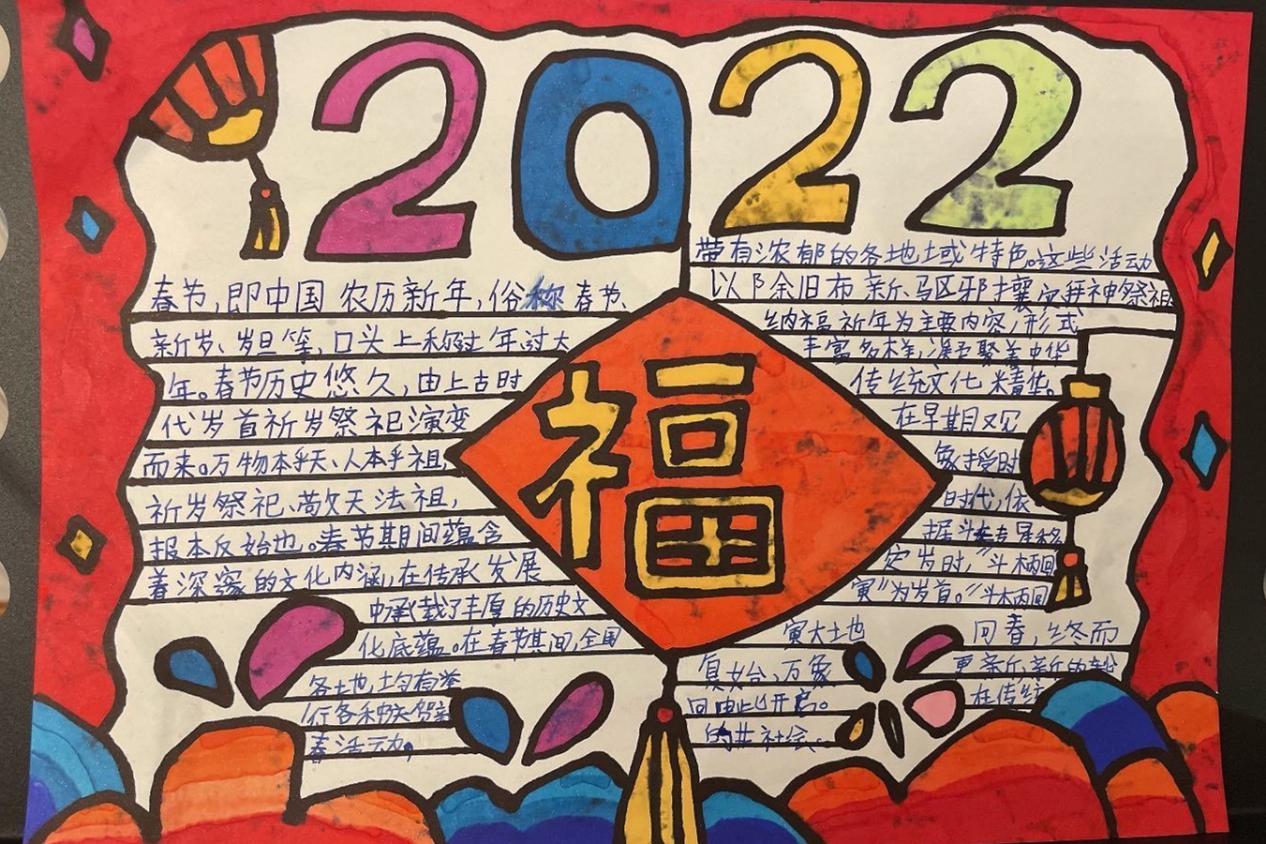 2022
春节,即中国农历新年,俗称春节、
新岁、岁旦等,口头上称过年、过大
年。春节历史悠久,由上古时
代岁首祈岁祭祀演变
而来。万物本乎天、人本乎祖,
祈岁祭祀、敬天法祖,
报本反始也。春节期间蕴含
着深邃的文化内涵,在传承发展
中承载了丰厚的历史文
化底蕴。在春节其间,全国
各地均有举
行各种贺
春活动。
福
带有浓郁的各地域特色。这些活动
以除旧布新、马区邪神祭祖
纳福祈年为主要内容,形式
丰富多样,凝聚着中华
传统文化精华。
在早期又见
象授时
时代,依
据斗
定岁时,"斗柄回
寅"为岁首。"斗柄回
寅大土也 回春,终而
复始、万象 更新、新的
回由此开启。 在传统
的社会